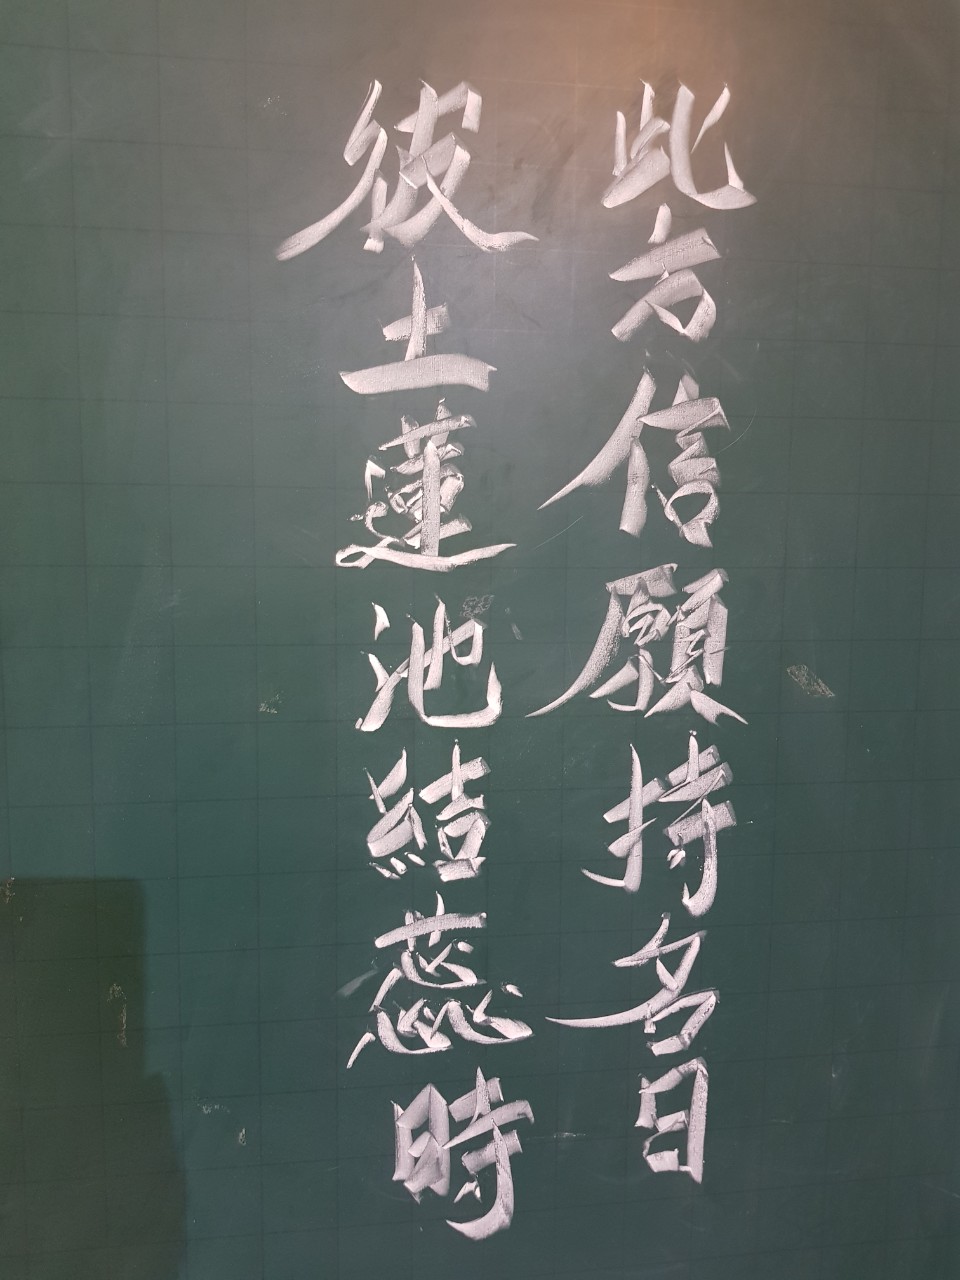 此方信願持名日
彼土蓮池結蕊時